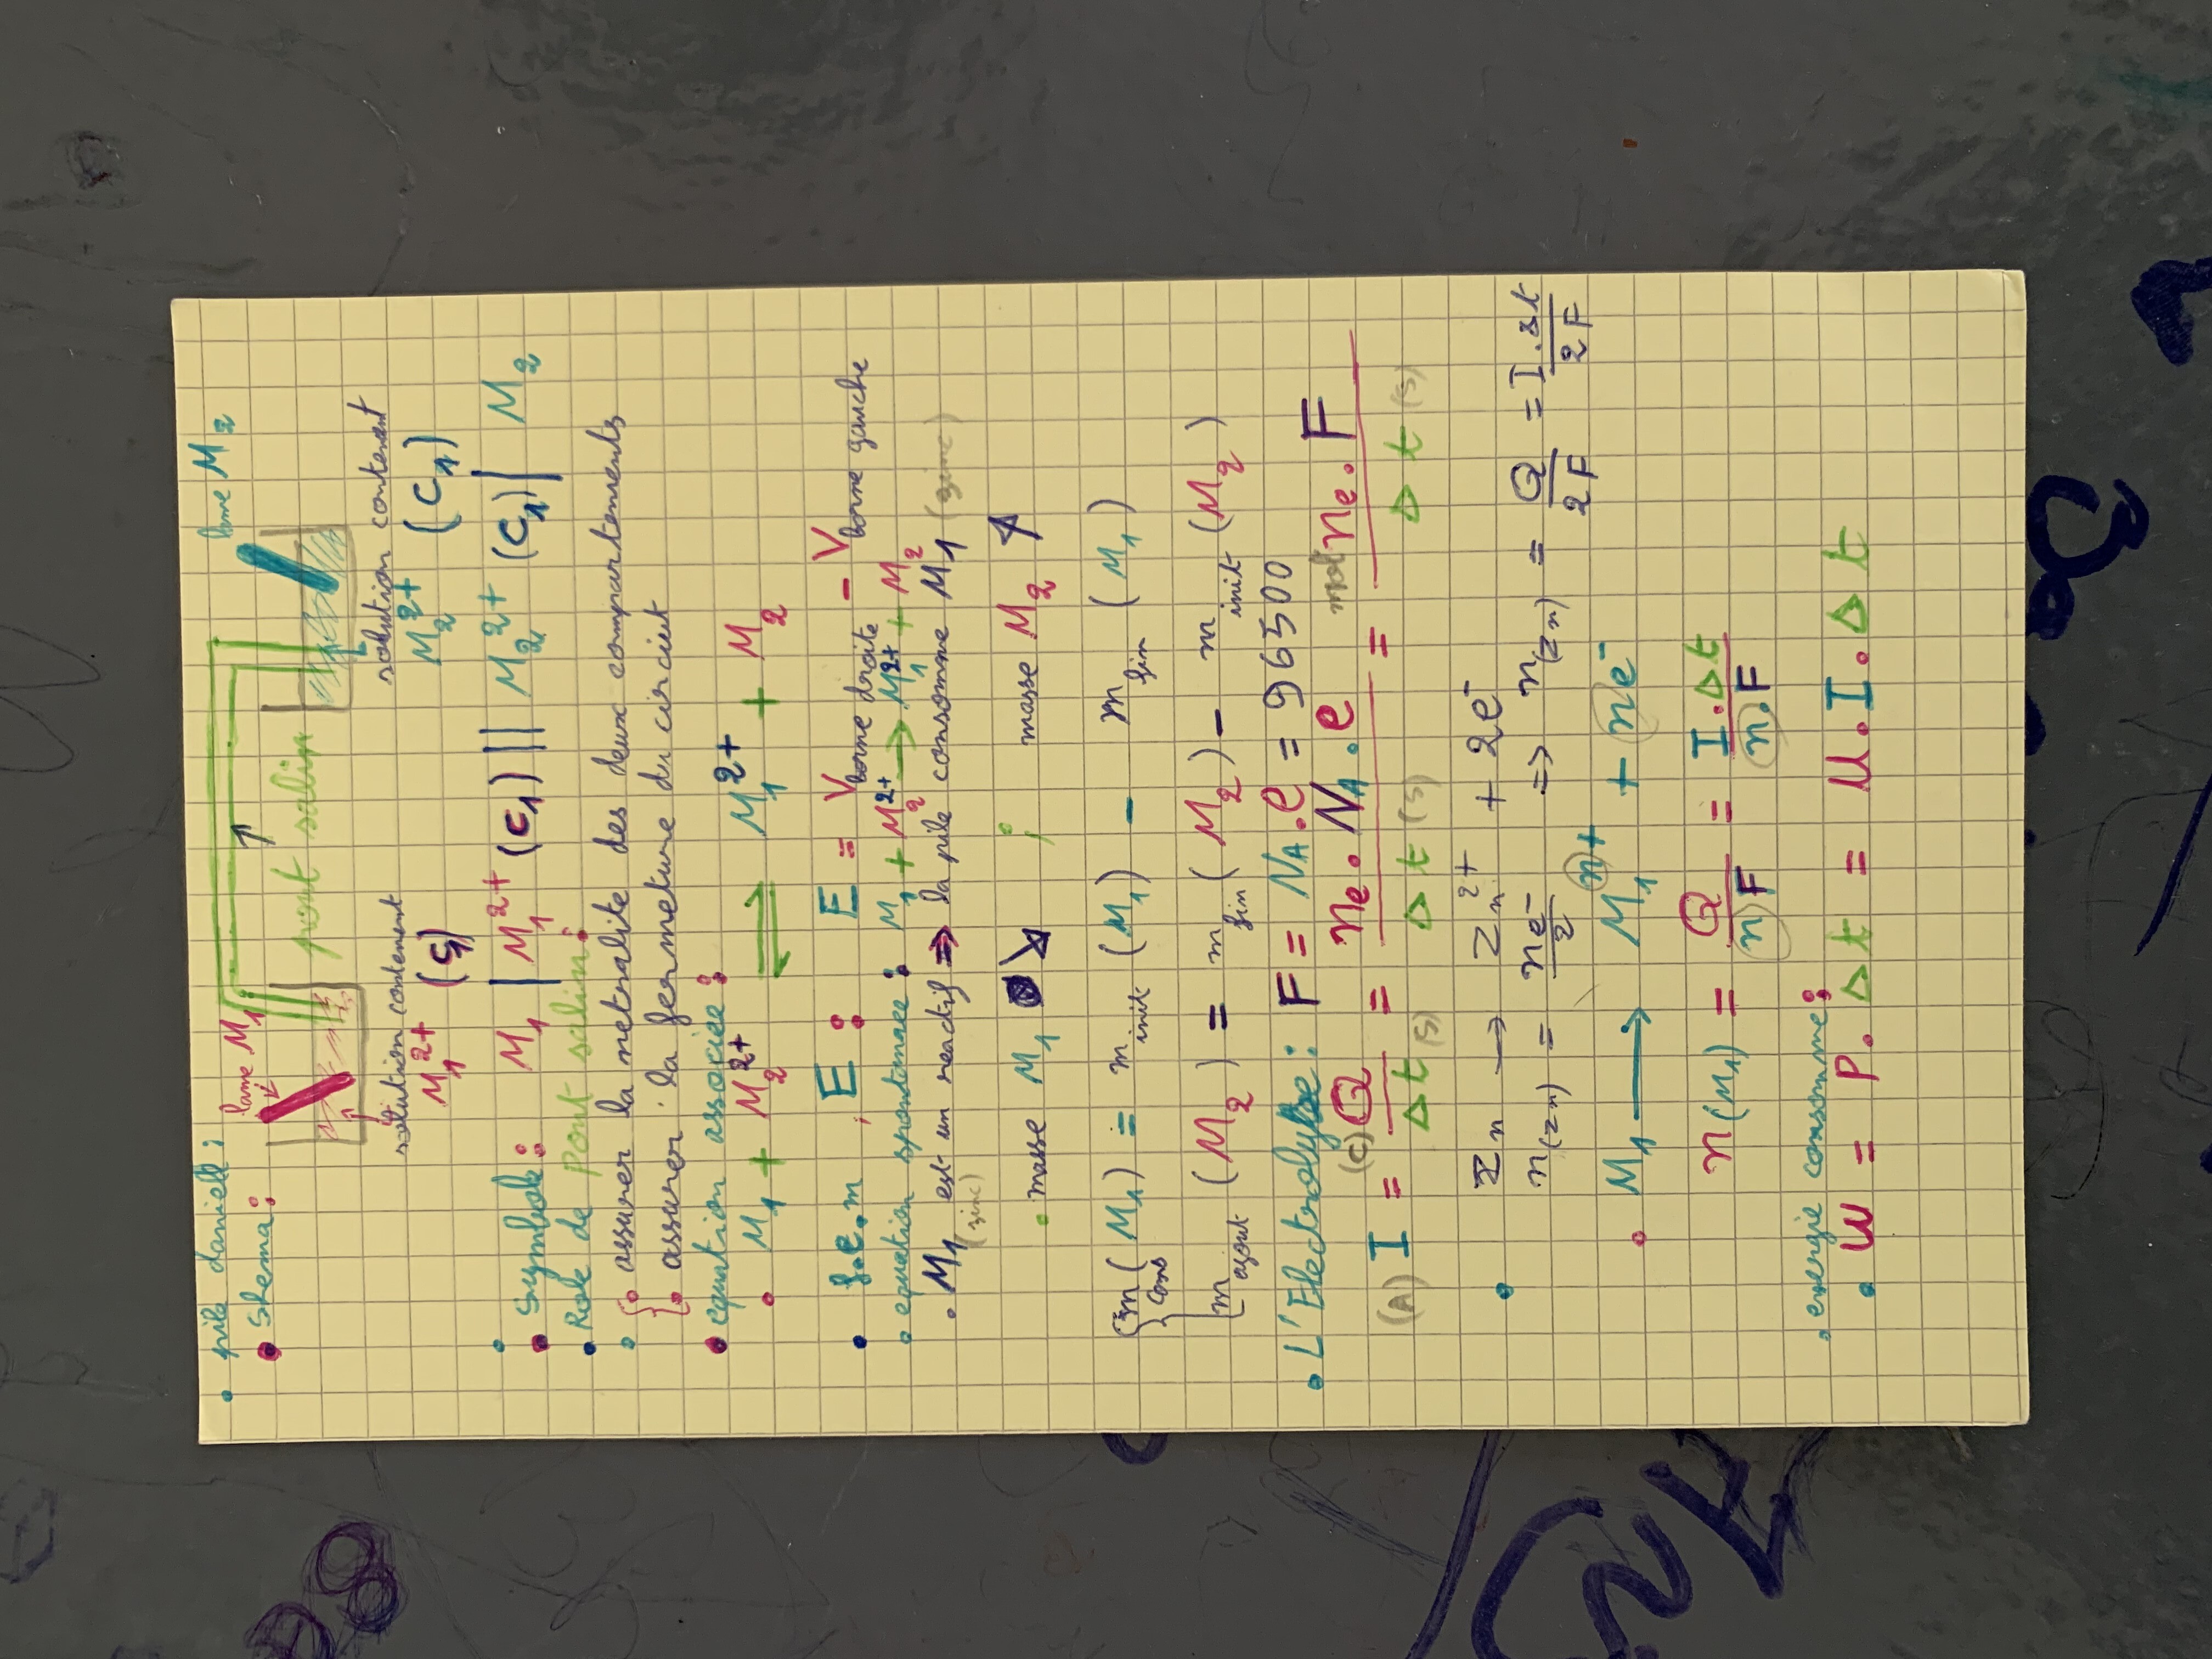 • pile daniell :
• Shema :
lame M₁
lame M₂
pont salin
solution contenent
M₁²⁺ (C₁)
solution contenent
M₂²⁺ (C₁)
• Symbole : M₁ | M₁²⁺ (C₁) || M₂²⁺ (C₁) | M₂
• Role de Pont salin :
• assurer la netralite des deux compartements
• assurer la fermeture du circiut
• equation associee :
• M₁ + M₂²⁺ ⇌ M₁²⁺ + M₂
• f.e.m , E : E = V borne droite - V borne gauche
• equation spontanaee : M₁ + M₂²⁺ → M₁²⁺ + M₂
• M₁ est un reactif ⇒ la pile consomme M₁ (zinc)
(zinc)
• masse M₁ ↘ ; masse M₂ ↗
m cons (M₁) = m init (M₁) - m fin (M₁)
m ajout (M₂) = m fin (M₂) - m init (M₂)
• L'Electrolyse : F = NA.e = 96500
(A) I = (C) Q / Δt (s) = ne.NA.e / Δt (s) = mol ne.F / Δt (s)
• Zn → Zn²⁺ + 2e⁻
n(Zn) = ne⁻/2 => n(Zn) = Q/2F = I.Δt/2F
• M₁ → M₁ⁿ⁺ + ne⁻
n(M₁) = Q/nF = I.Δt/n.F
• energie consomme :
• W = P.Δt = U.I.Δt